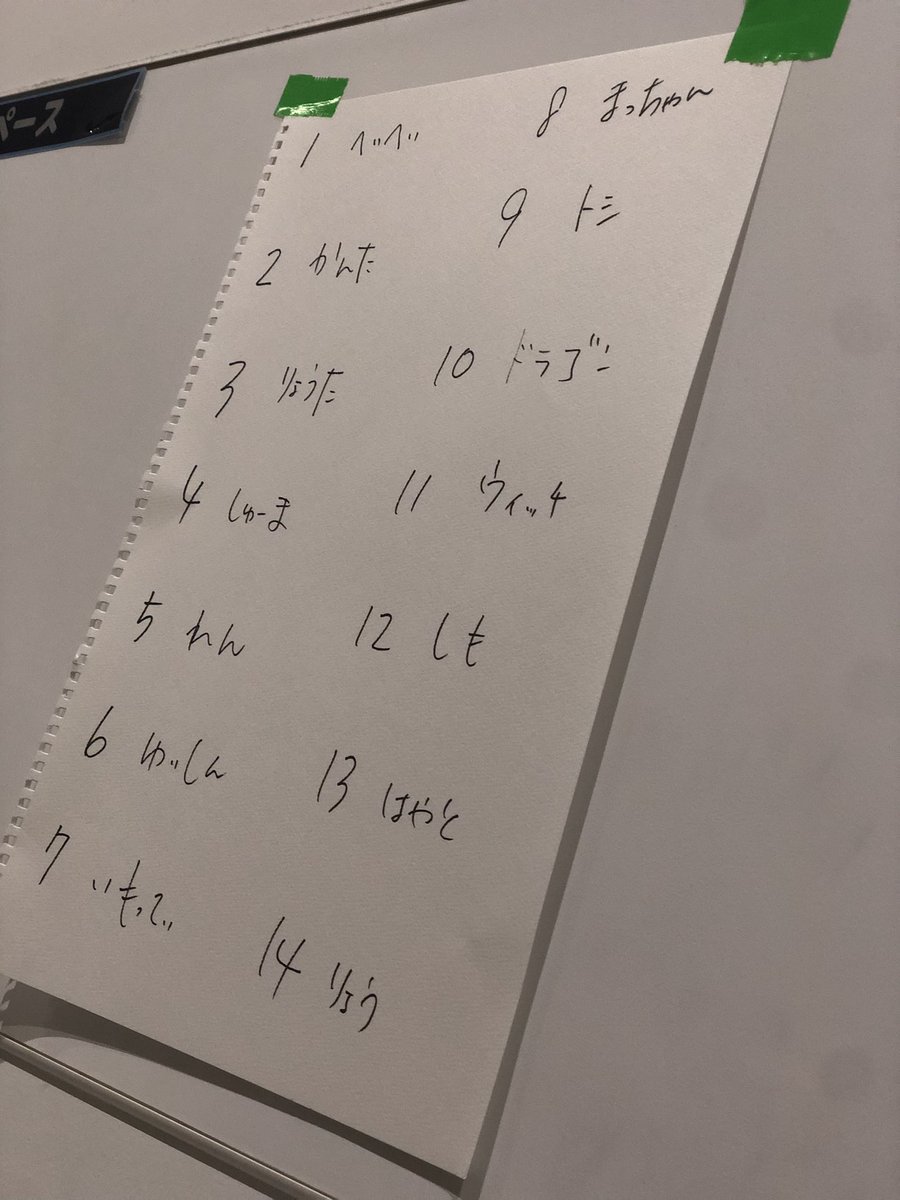 ペース
1 べべ
2 かんた
3 りょうた
4 しゅーま
5 れん
6 ゆいしん
7 いもってぃ
8 まっちゃん
9 トミ
10 ドラゴン
11 ウィッチ
12 しも
13 はやと
14 りょう